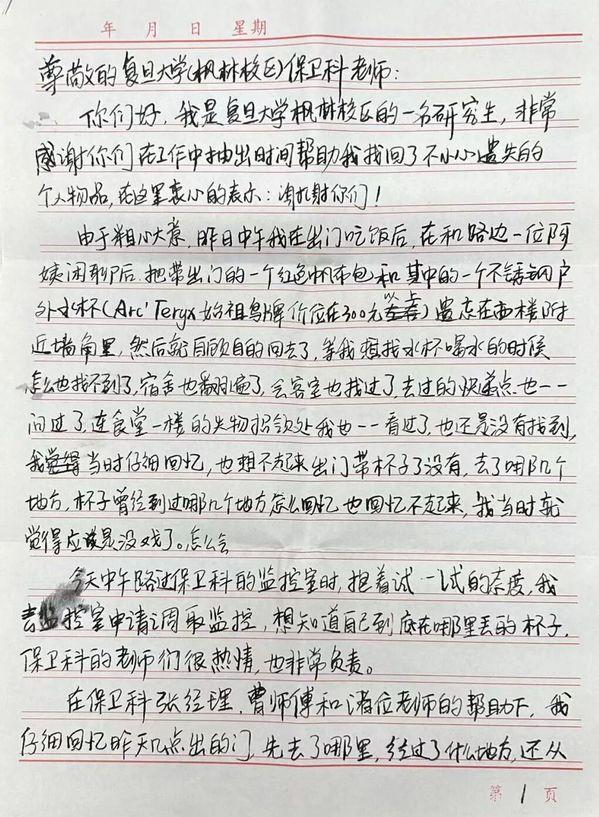 年 月 日 星期
尊敬的复旦大学(枫林校区)保卫科老师:
你们好,我是复旦大学枫林校区的一名研究生,非常
感谢你们在工作中抽出时间帮助我找回了不小心遗失的
个人物品,在这里衷心的表示:谢谢你们!
由于粗心大意,昨日中午我在出门吃饭后,在和路边一位阿
姨闲聊后,把带出门的一个红色帆布包和其中的一个不锈钢户
外水杯(Arc'Teryx始祖鸟牌价位在300元以上)遗忘在西楼附
近墙角里,然后就自顾自的回去了,等我想找水杯喝水的时候
怎么也找不到了,宿舍也翻遍了,会客室也找过了,去过的快递点也一一
问过了,连食堂一楼的失物招领处我也一一看过了,也还是没有找到,
我觉得当时仔细回忆,也想不起来出门带杯子了没有,去了哪几个
地方,杯子曾经到过哪几个地方怎么回忆也回忆不起来,我当时就
觉得应该是没戏了。怎么会
今天中午路过保卫科的监控室时,抱着试一试的态度,我
去监控室申请调取监控,想知道自己到底在哪里丢的杯子,
保卫科的老师们很热情,也非常负责。
在保卫科张经理,曹师傅和诸位老师的帮助下,我
仔细回忆昨天几点出的门,先去了哪里,经过了什么地方,还从
第 1 页